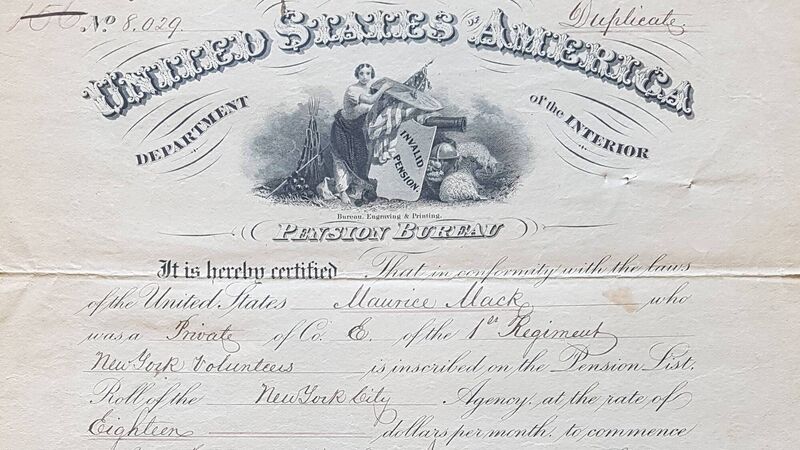 No 8,029.
Duplicate.
UNITED STATES OF AMERICA
DEPARTMENT of the INTERIOR
INVALID
PENSION.
Bureau, Engraving & Printing.
PENSION BUREAU
It is hereby certified That in conformity with the laws
of the United States Maurice Mack who
was a Private of Co. E. of the 1st Regiment
New York Volunteers is inscribed on the Pension List,
Roll of the New York City Agency, at the rate of
Eighteen dollars per month, to commence